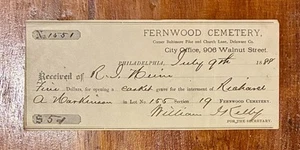 No 1451
FERNWOOD CEMETERY,
Corner Baltimore Pike and Church Lane, Delaware Co.
City Office, 906 Walnut Street.
PHILADELPHIA, July 9th 1888
Received of R. S.
Five Dollars, for opening a casket grave for the interment of Richard
A in Lot No. 155 Section 19 FERNWOOD CEMETERY.
$5 William H Kelly
FOR THE SECRETARY.